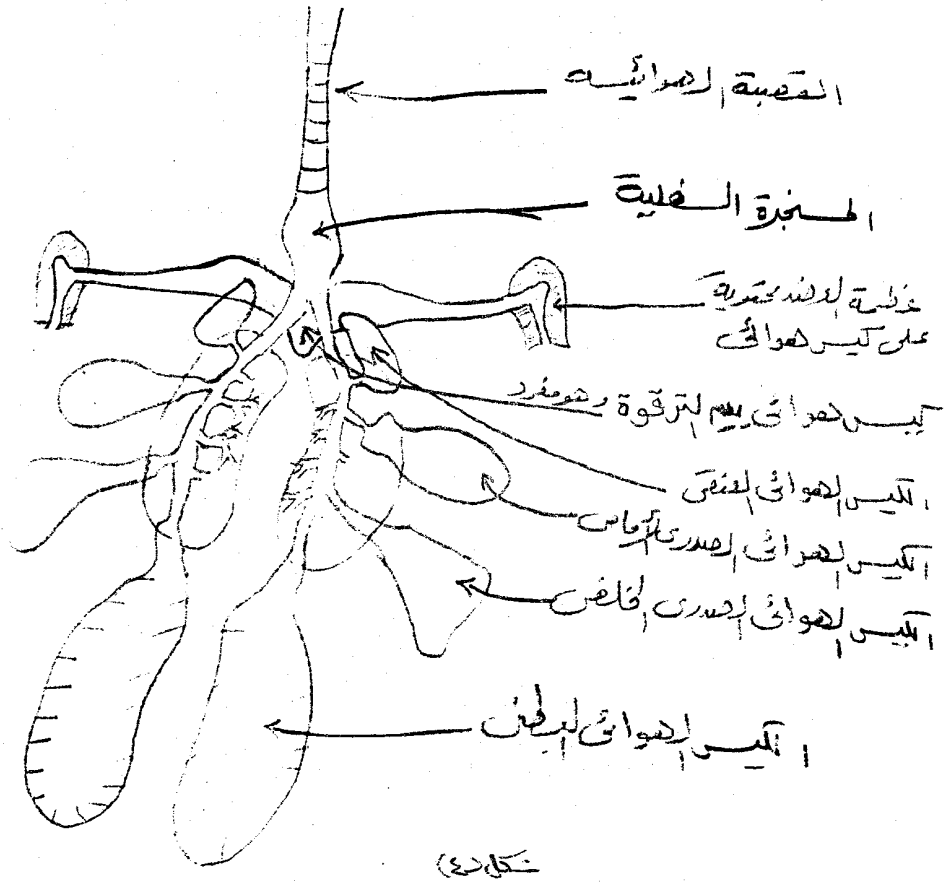 القصبة الهوائية
الحنجرة السفلية
عظمة العضد محتوية
على كيس هوائى
كيس هوائى بين الترقوة وهو مفرد
الكيس الهوائى العنقى
الكيس الهوائى الصدرى الأمامى
الكيس الهوائى الصدرى الخلفى
الكيس الهوائى البطنى
شكل (٤)